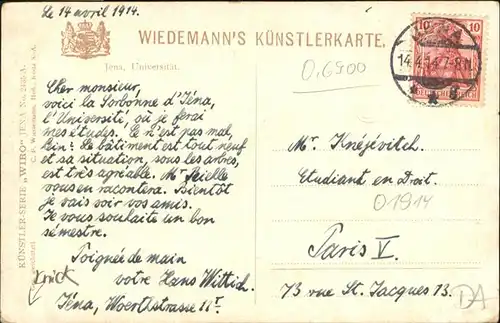 Le 14 avril 1914.
WIEDEMANN'S KÜNSTLERKARTE.
Jena, Universität.
JENA
14.4.14.7-8N.
10 10
DEUTSCHES REICH
0,6900
Cher monsieur,
voici la Sorbonne d'Iéna,
l'Université, où je ferai
mes études. Ce n'est pas mal,
hein? Le bâtiment est tout neuf
et sa situation, sous les arbres,
est très agréable. Mr
vous en racontera. Bientôt
je vais voir vos amis.
Je vous souhaite un bon
sémestre.
Poignée de main
votre Hans Wittich.
Iéna, 11I.
Mr. Knéjévitch.
Etudiant en Droit.
01914
Paris V.
73 rue St. Jacques 73.
DA
Knick
KÜNSTLER-SERIE "WIRO" JENA No.